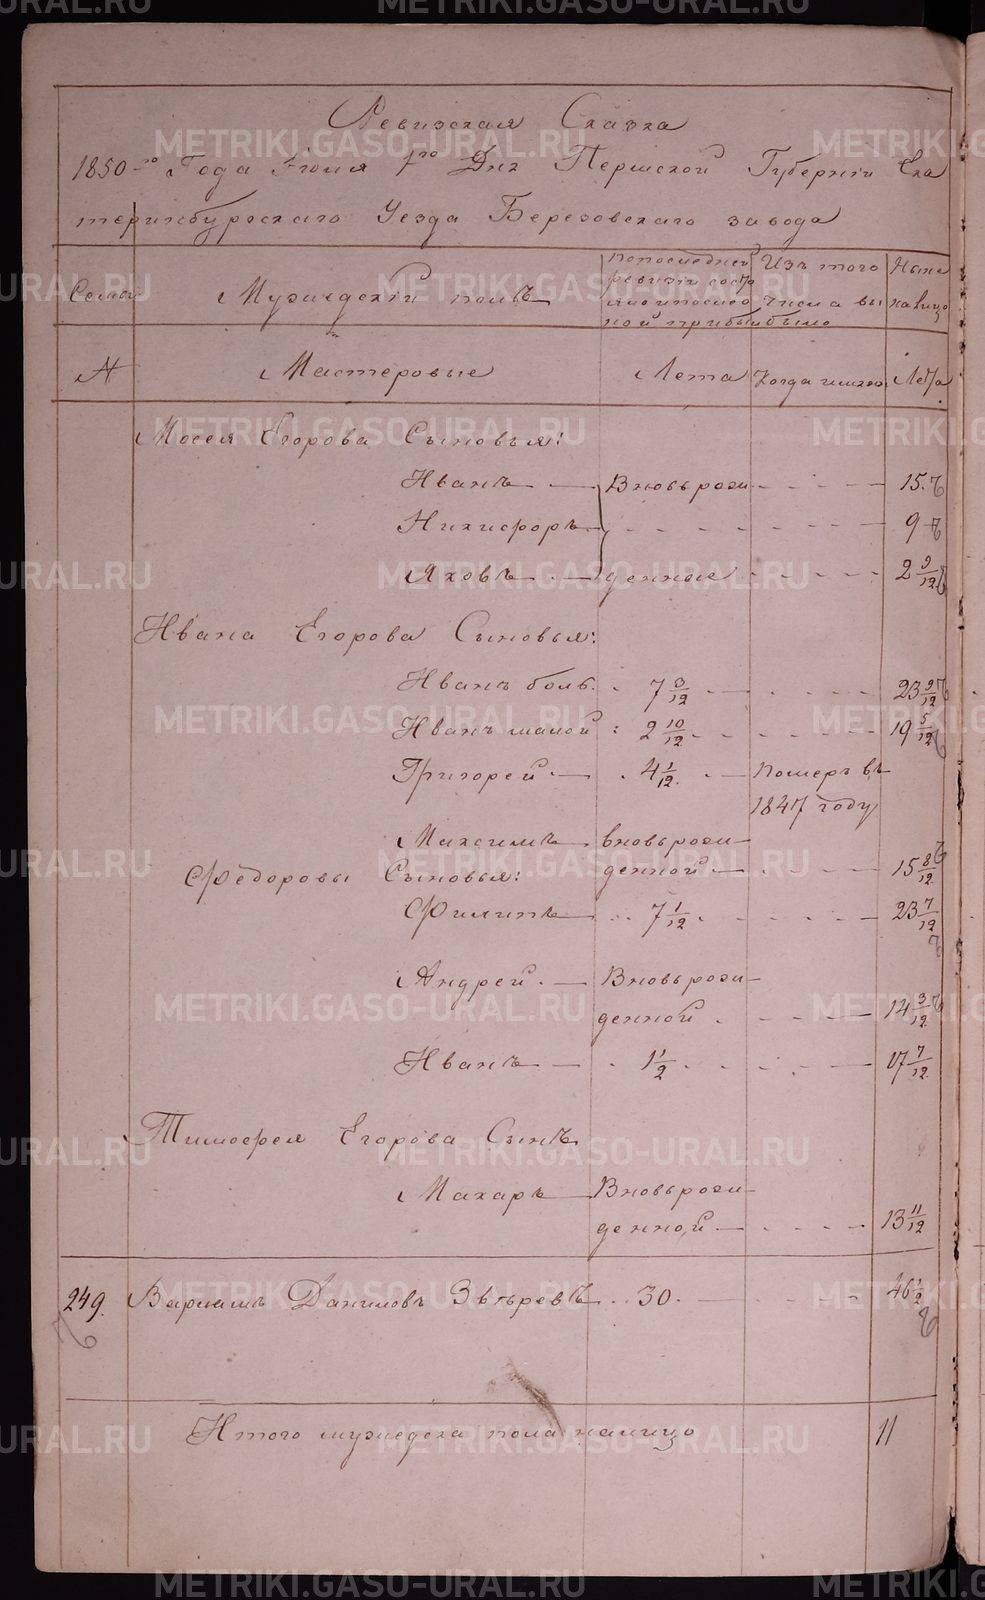 Ревизская Сказка
1850-го Года Июня 1го Дня Пермской Губернiи Ека
теринбургскаго Уезда Березовскаго завода
Семьи
Мужескiй полъ
По последней ревизiи состояло и после оной прибыло
Изъ того числа выбыло
Ныне на лицо
№
Мастеровые
Лета
Когда именно
Лета
Мосея Егорова Сыновья:
Иванъ Вновь рож 15.
Никифоръ 9
Яковъ денные 2 9/12
Ивана Егорова Сыновья:
Иванъ боль. 7 3/12 23 9/12
Иванъ малой: 2 10/12 19 5/12
Григорей 4 1/12 Померъ въ
1847 году
Максимъ вновь рож
денной 15 8/12
Федоровы Сыновья:
Филипъ 7 1/12 23 7/12
Андрей Вновь рож
денной 14 3/12
Иванъ 1 1/2 17 7/12
Тимофея Егорова Сынъ
Макаръ Вновь рож
денной 13 11/12
249. Варламъ Даниловъ Звѣревъ 30. 46 1/2
Итого мужеска пола налицо 11
METRIKI.GASO-URAL.RU